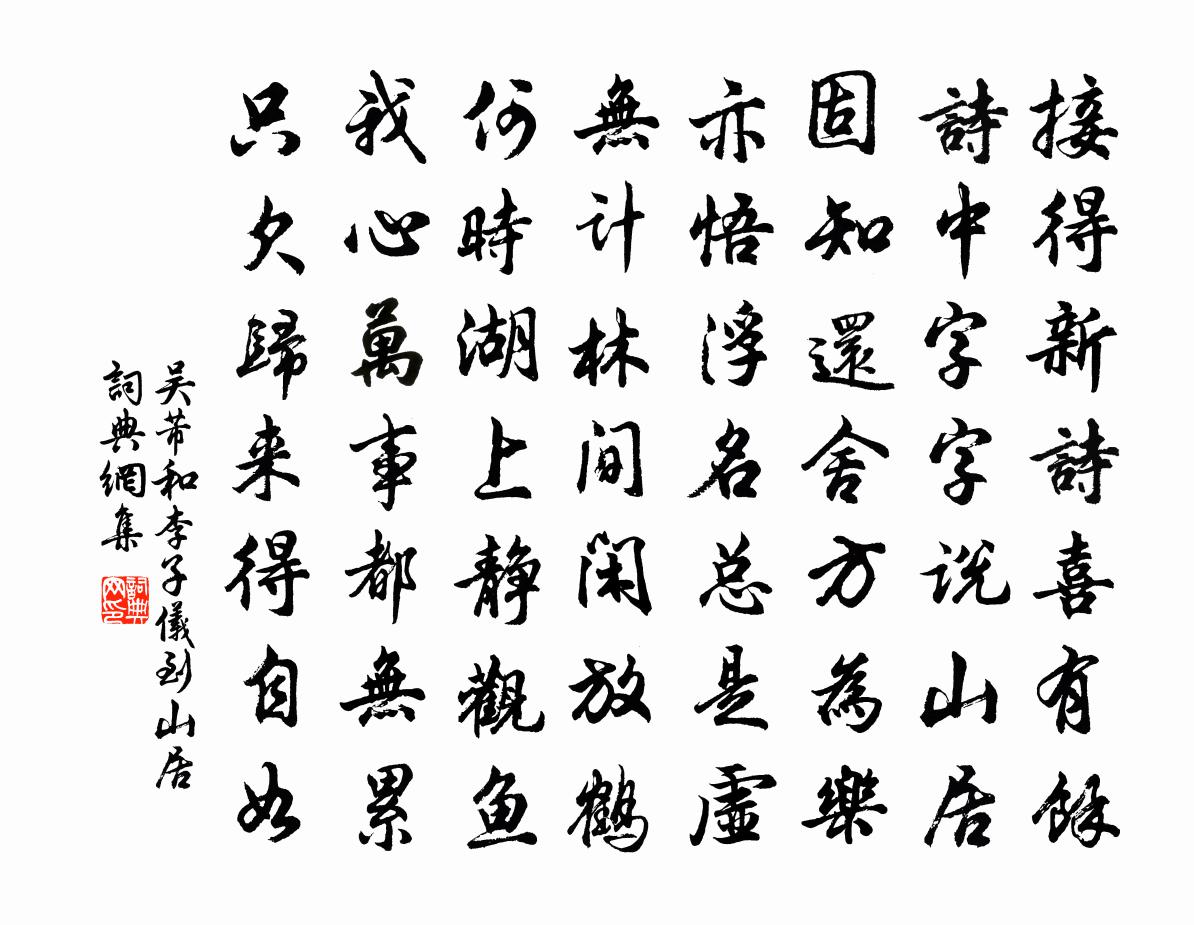 接得新詩喜有餘
詩中字字说山居
固知還舍方為樂
亦悟浮名总是虛
無计林间闲放鶴
何時湖上静觀鱼
我心萬事都無累
只欠歸来得自如
吴芾和李子儀到山居
詞典網集
詞典网印